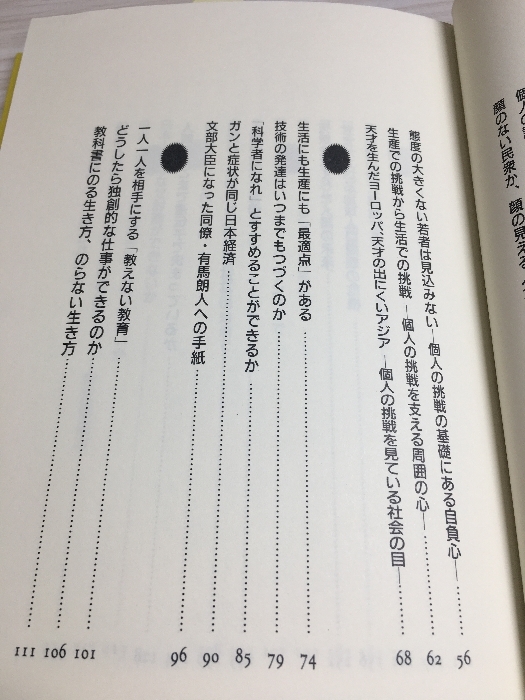 顔のない民衆が、顔の見える
態度の大きくない若者は見込みない―個人の挑戦の基礎にある自負心―……56
生産での挑戦から生活での挑戦―個人の挑戦を支える周囲の心―……62
天才を生んだヨーロッパ、天才の出にくいアジア―個人の挑戦を見ている社会の目―……68
生活にも生産にも「最適点」がある……74
技術の発達はいつまでもつづくのか……79
「科学者になれ」とすすめることができるか……85
ガンと症状が同じ日本経済……90
文部大臣になった同僚・有馬朗人への手紙……96
一人一人を相手にする「教えない教育」……101
どうしたら独創的な仕事ができるのか……106
教科書にのる生き方、のらない生き方……111